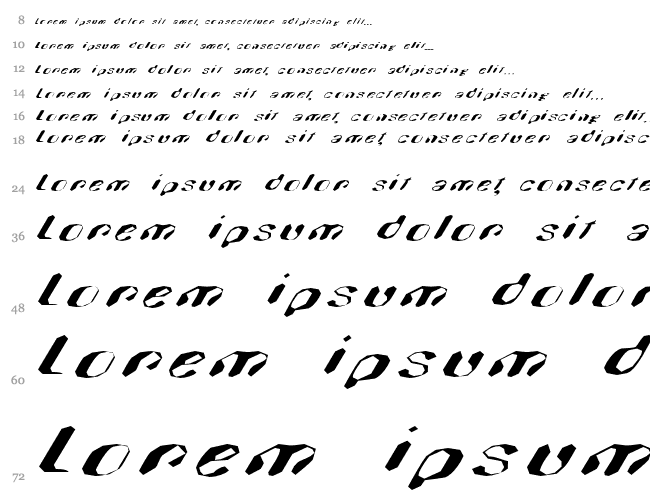 8 Lorem ipsum dolor sit amet, consectetuer adipiscing elit...
10 Lorem ipsum dolor sit amet, consectetuer adipiscing elit...
12 Lorem ipsum dolor sit amet, consectetuer adipiscing elit...
14 Lorem ipsum dolor sit amet, consectetuer adipiscing elit...
16 Lorem ipsum dolor sit amet, consectetuer adipiscing elit.
18 Lorem ipsum dolor sit amet, consectetuer adipisc
24 Lorem ipsum dolor sit amet, consecte
36 Lorem ipsum dolor sit a
48 Lorem ipsum dolor
60 Lorem ipsum d
72 Lorem ipsum